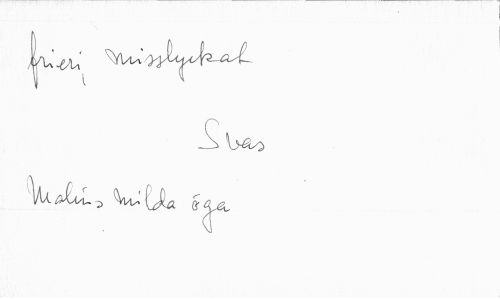 frieri, misslyckat
Svas
Malins milda öga